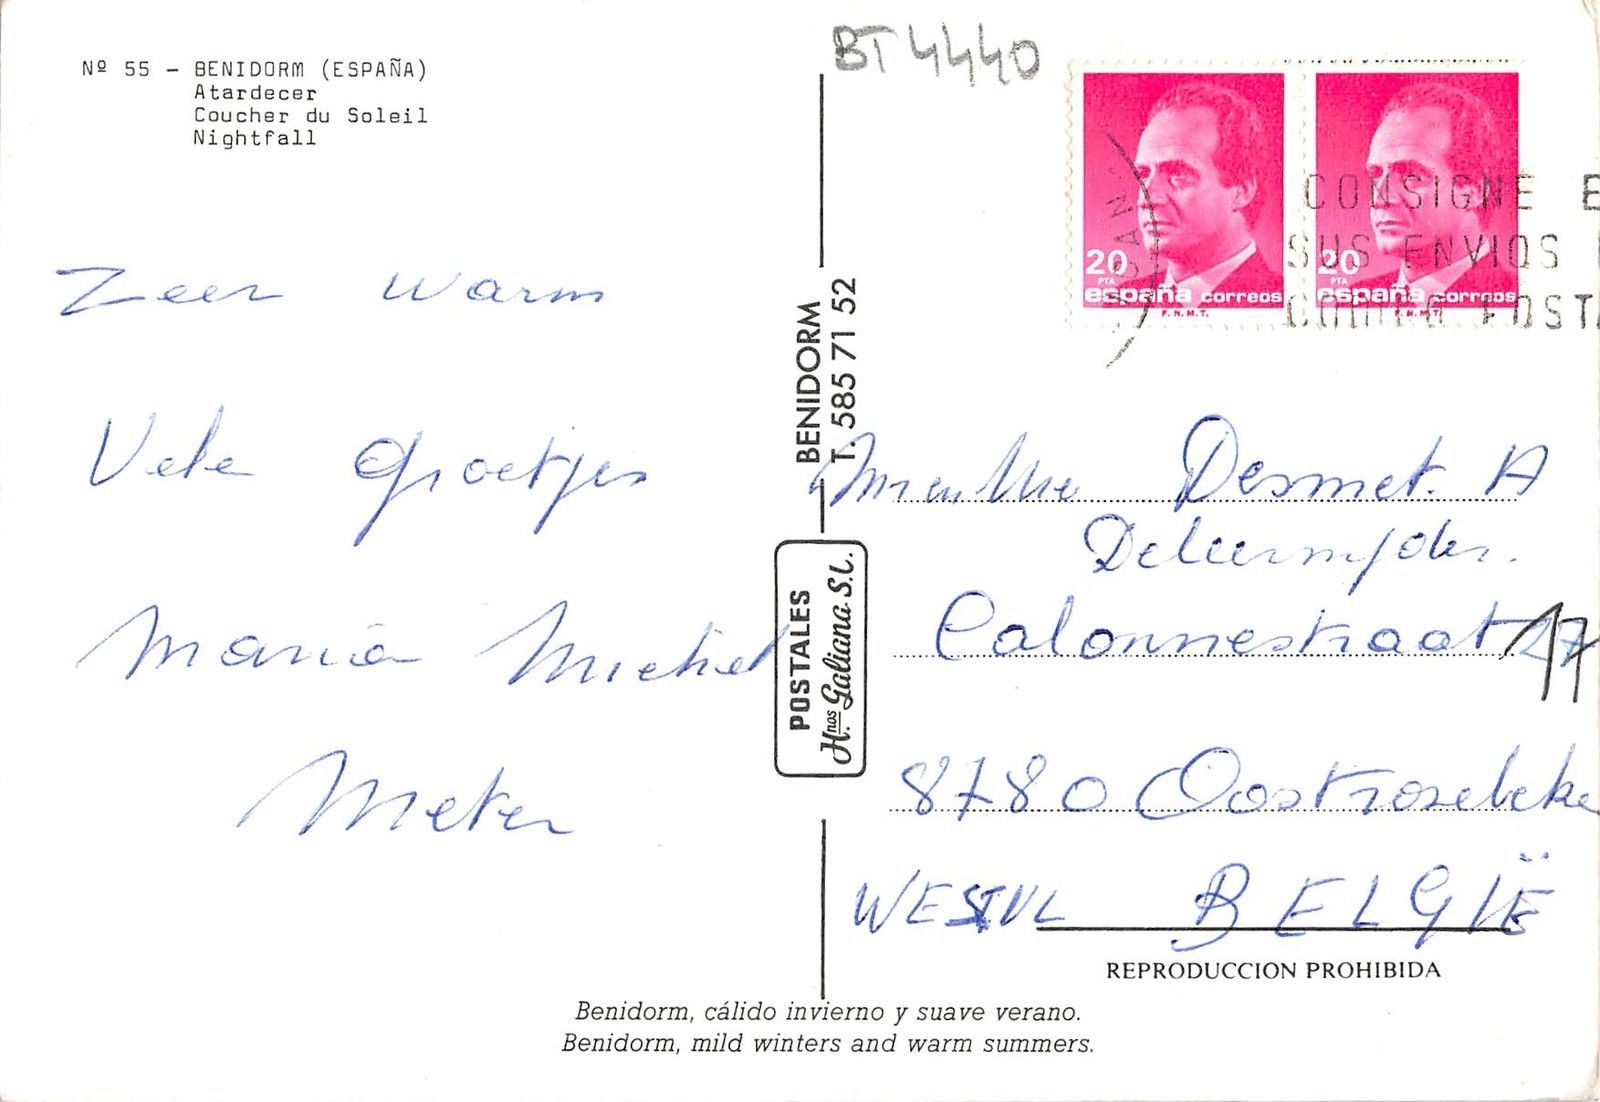 Nº 55 - BENIDORM (ESPAÑA)
Atardecer
Coucher du Soleil
Nightfall
BT 4440
20
PTA
españa correos
F.N.M.T.
20
españa correos
F.N.M.T.
CONSIGNE E
SUS ENVIOS
POSTA
Zeer warm
Vele groetjes
Maria Michel
Meter
BENIDORM
T. 585 71 52
POSTALES
Hnos. Galiana S.L.
Mr en Mve Desmet. A
Calonnestraat 17
8780 Oostrozebeke
WESTVL BELGIË
REPRODUCCION PROHIBIDA
Benidorm, cálido invierno y suave verano.
Benidorm, mild winters and warm summers.